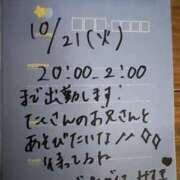 10/21(火)
20:00-2:00
まで出勤します!
たくさんのお兄さんと
あそびたいな!!◇◇
待ってるね